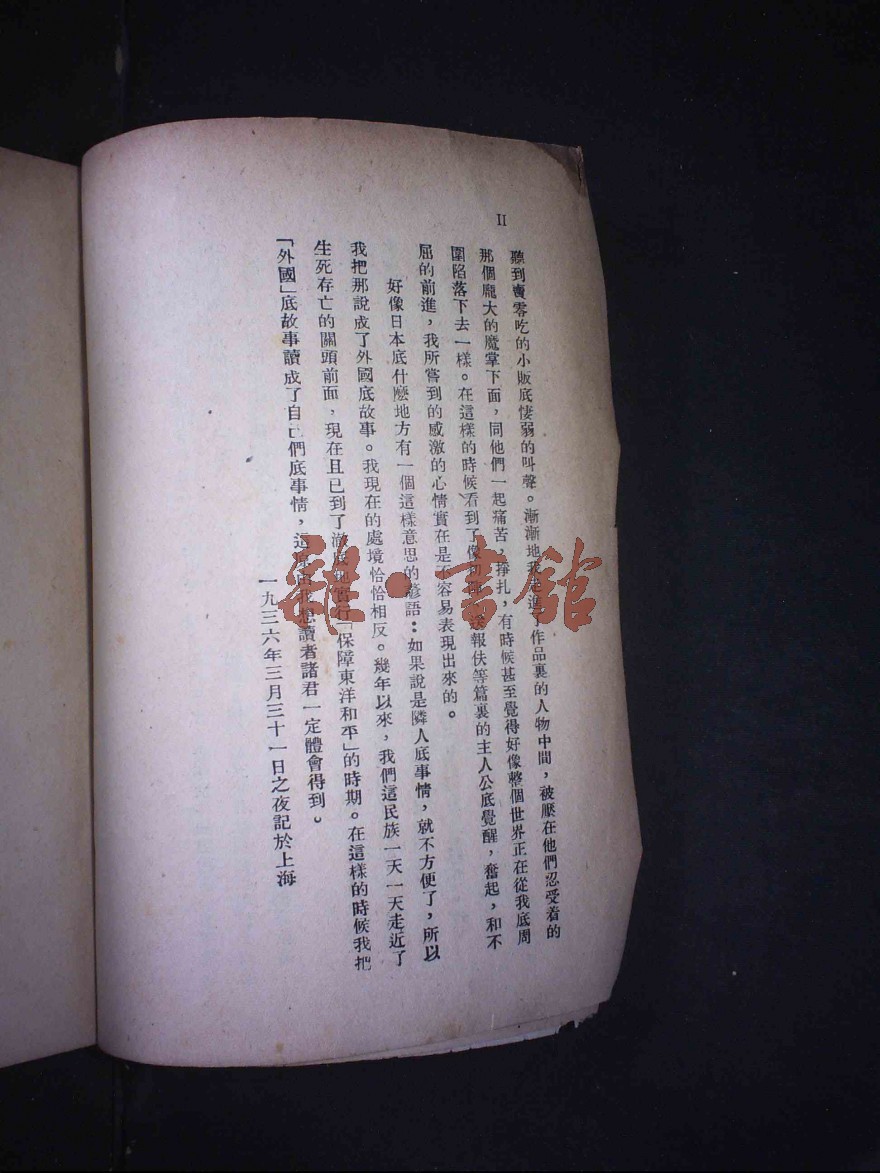 II
聽到賣零吃的小販底悽弱的叫聲。漸漸地我走進了作品裏的人物中間，被壓在他們忍受着的
那個龐大的魔掌下面，同他們一起痛苦，掙扎，有時候甚至覺得好像整個世界正在從我底周
圍陷落下去一樣。在這樣的時候看到了像初陣，送報伕等篇裏的主人公底覺醒，奮起，和不
屈的前進，我所嘗到的感激的心情實在是不容易表現出來的。
好像日本底什麼地方有一個這樣意思的諺語：如果說是隣人底事情，就不方便了，所以
我把那說成了外國底故事。我現在的處境恰恰相反。幾年以來，我們這民族一天一天走近了
生死存亡的關頭前面，現在且已到了澈底地實行「保障東洋和平」的時期。在這樣的時候我把
「外國」底故事讀成了自己們底事情，這 我想讀者諸君一定體會得到。
一九三六年三月三十一日之夜記於上海
雜·書館